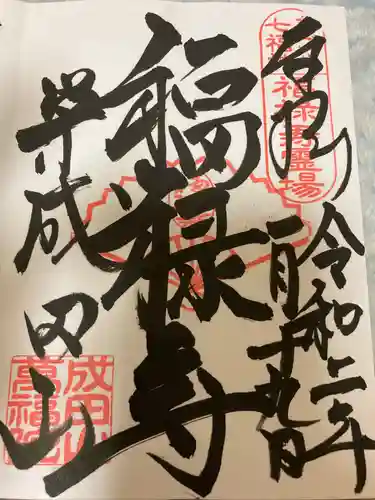 奉拝
令和二年
一月十九日
福禄寿
成田山
七福
福禄寿霊場
成田山
萬福院